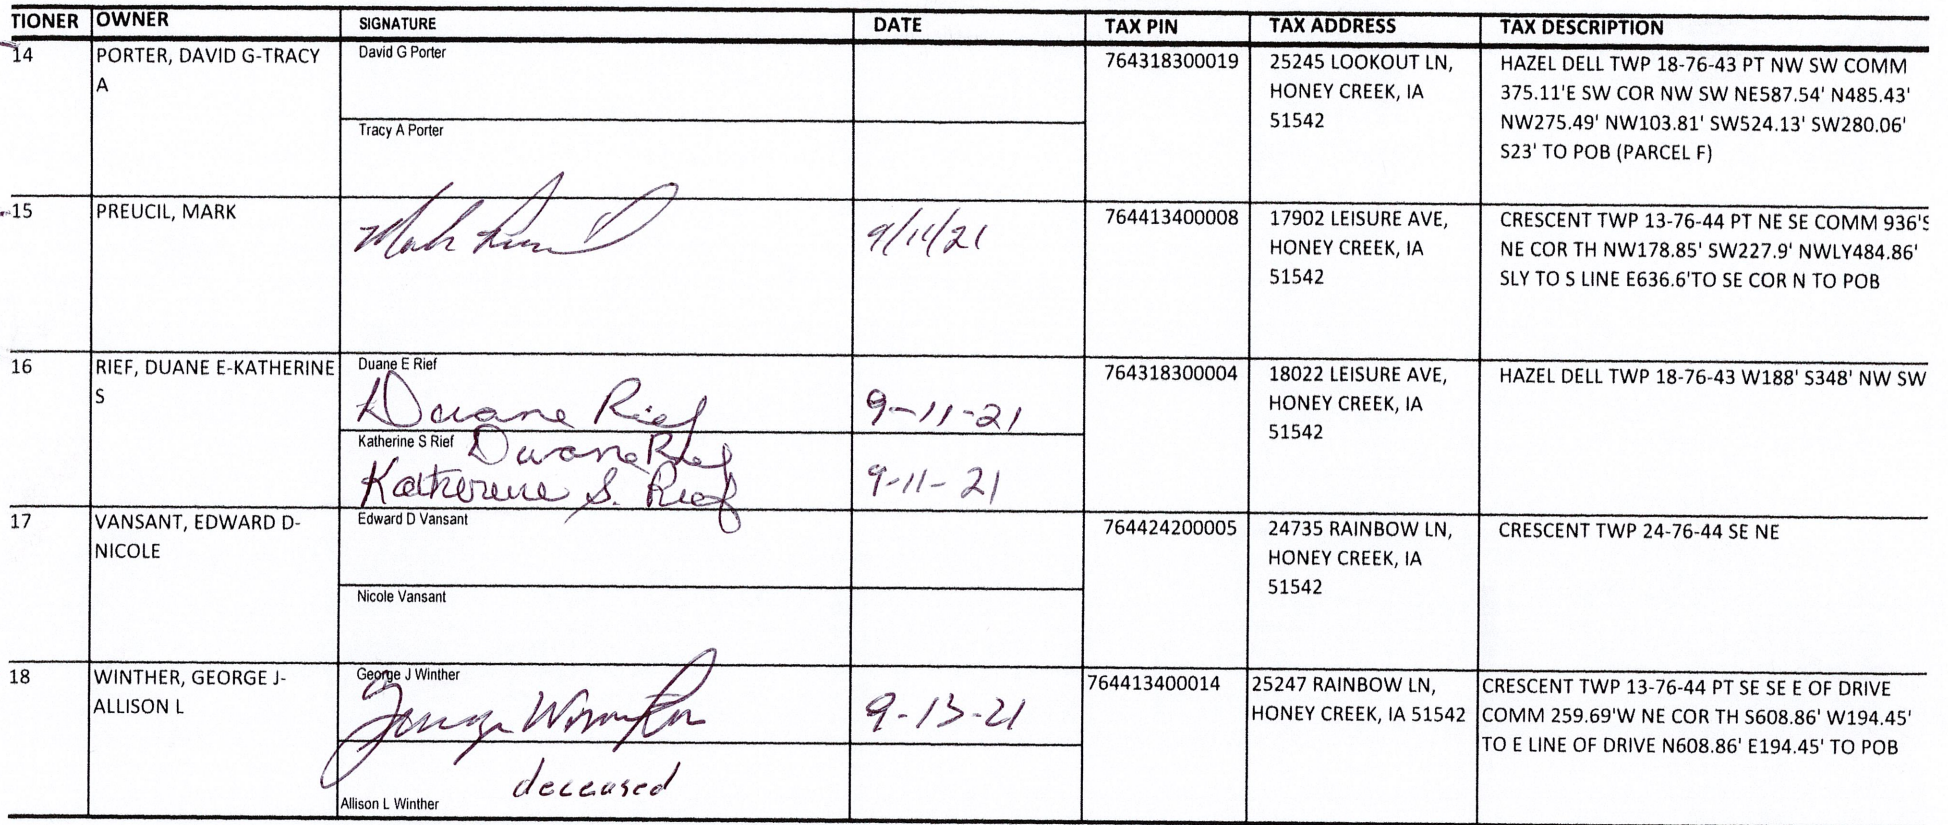 TIONER OWNER SIGNATURE DATE TAX PIN TAX ADDRESS TAX DESCRIPTION
14 PORTER, DAVID G-TRACY
A
David G Porter
Tracy A Porter
764318300019
25245 LOOKOUT LN,
HONEY CREEK, IA
51542
HAZEL DELL TWP 18-76-43 PT NW SW COMM
375.11'E SW COR NW SW NE587.54' N485.43'
NW275.49' NW103.81' SW524.13' SW280.06'
S23' TO POB (PARCEL F)
15 PREUCIL, MARK
Mark
9/11/21
764413400008
17902 LEISURE AVE,
HONEY CREEK, IA
51542
CRESCENT TWP 13-76-44 PT NE SE COMM 936'S
NE COR TH NW178.85' SW227.9' NWLY484.86'
SLY TO S LINE E636.6'TO SE COR N TO POB
16 RIEF, DUANE E-KATHERINE
S
Duane E Rief
Duane Rief
9-11-21
Katherine S Rief Duane Rief
Katherine S. Rief
9-11-21
764318300004
18022 LEISURE AVE,
HONEY CREEK, IA
51542
HAZEL DELL TWP 18-76-43 W188' S348' NW SW
17 VANSANT, EDWARD D-
NICOLE
Edward D Vansant
Nicole Vansant
764424200005
24735 RAINBOW LN,
HONEY CREEK, IA
51542
CRESCENT TWP 24-76-44 SE NE
18 WINTHER, GEORGE J-
ALLISON L
George J Winther
George Winther
9-13-21
deceased
Allison L Winther
764413400014
25247 RAINBOW LN,
HONEY CREEK, IA 51542
CRESCENT TWP 13-76-44 PT SE SE E OF DRIVE
COMM 259.69'W NE COR TH S608.86' W194.45'
TO E LINE OF DRIVE N608.86' E194.45' TO POB